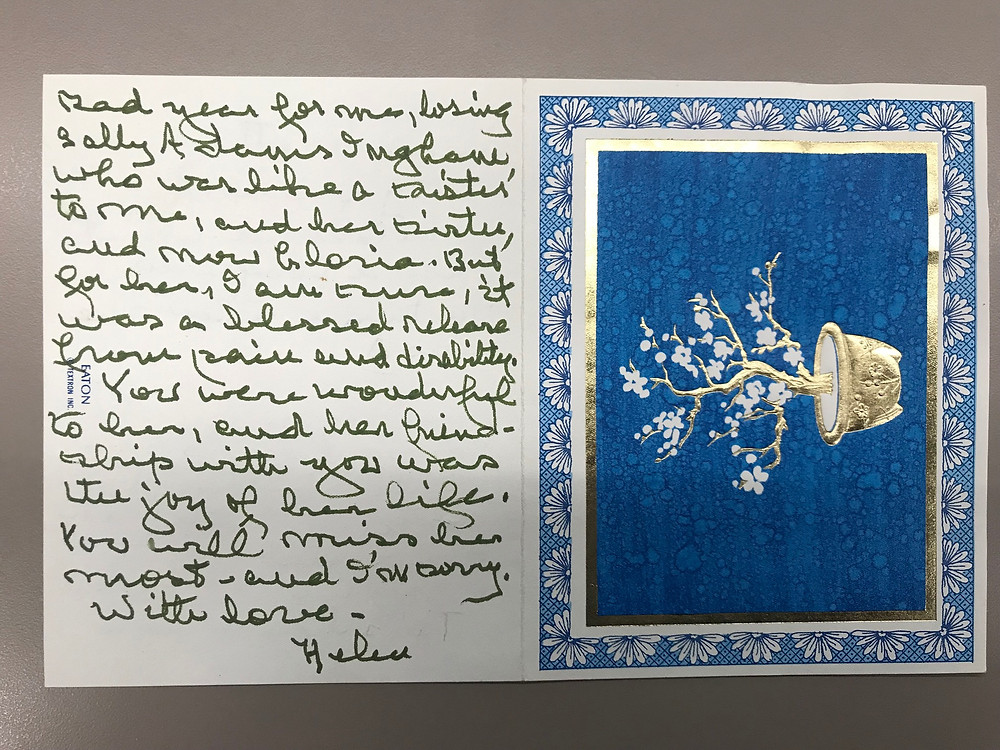 sad year for me, losing
Sally A. Davis Ingham,
who was like a sister
to me, and her sister,
and now Gloria. But
for her, I am sure, it
was a blessed release
from pain and disability.
You were wonderful
to her, and her friend-
ship with you was
the joy of her life.
You will miss her
most - and I'm sorry.
With love -
Helen
EATON
TEXTRON INC.